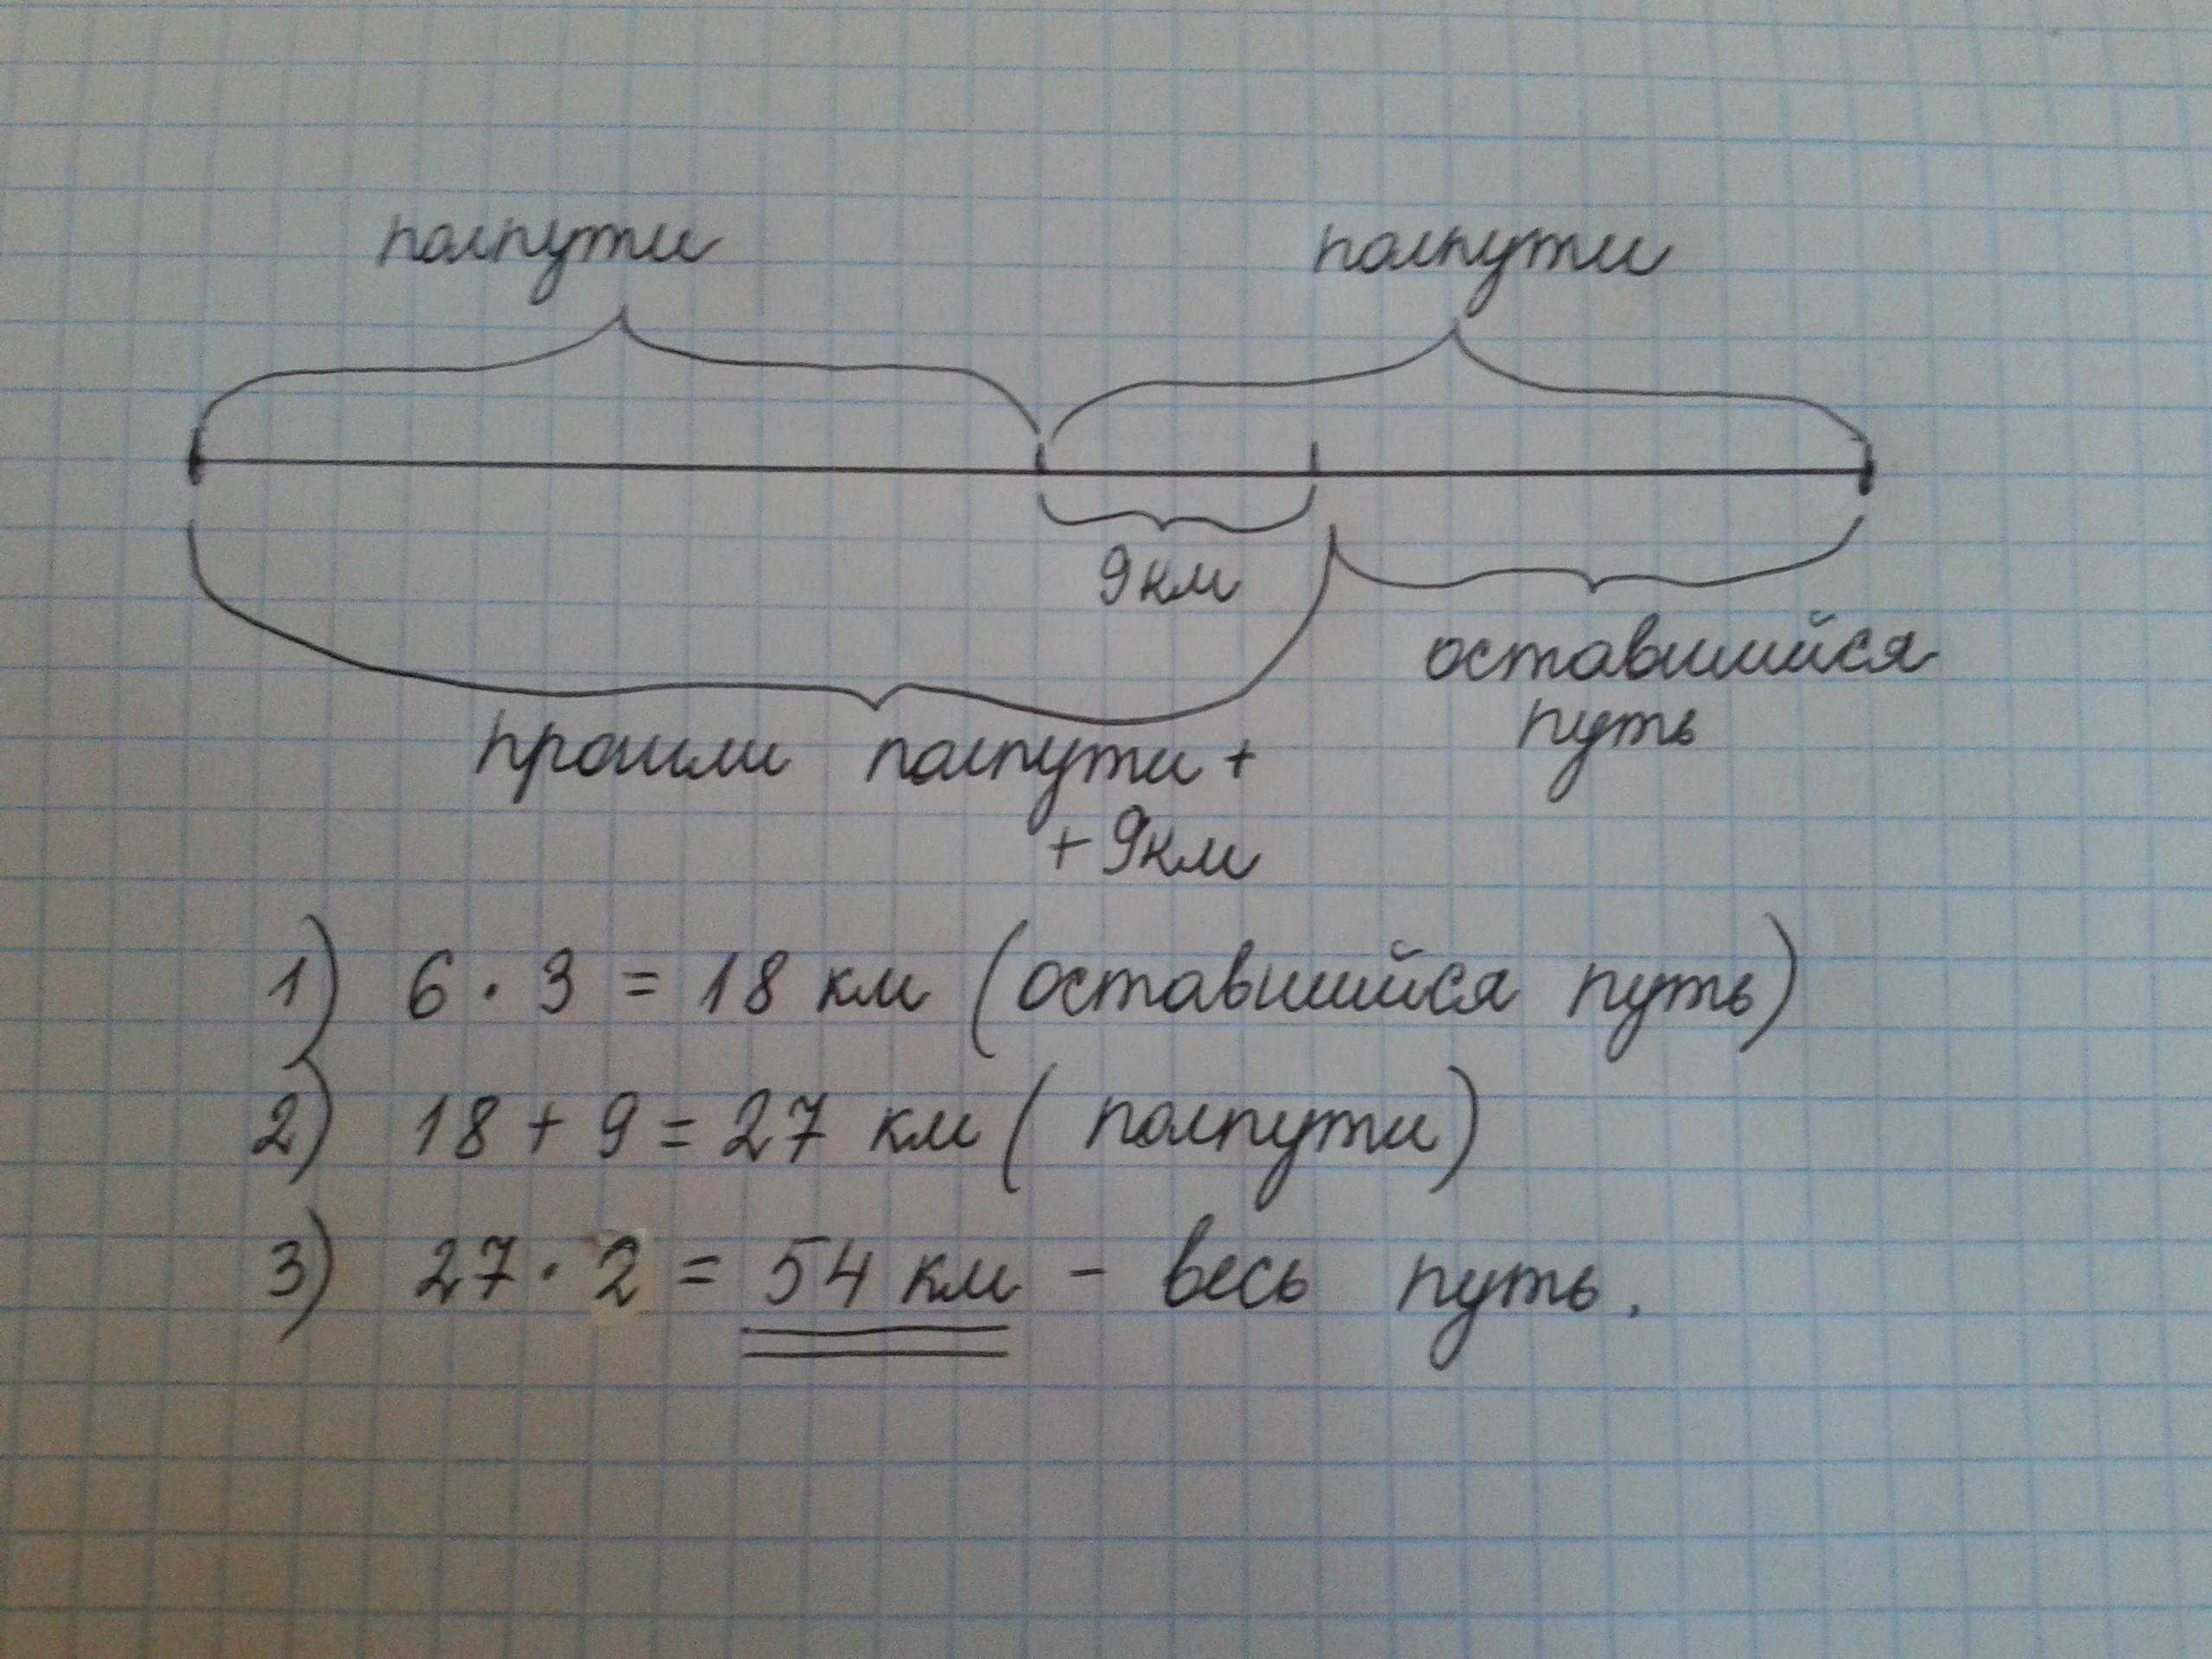 полпути полпути
9км
оставшийся
путь
прошли полпути +
+ 9км
1) 6 · 3 = 18 км (оставшийся путь)
2) 18 + 9 = 27 км ( полпути)
3) 27 · 2 = 54 км - весь путь.